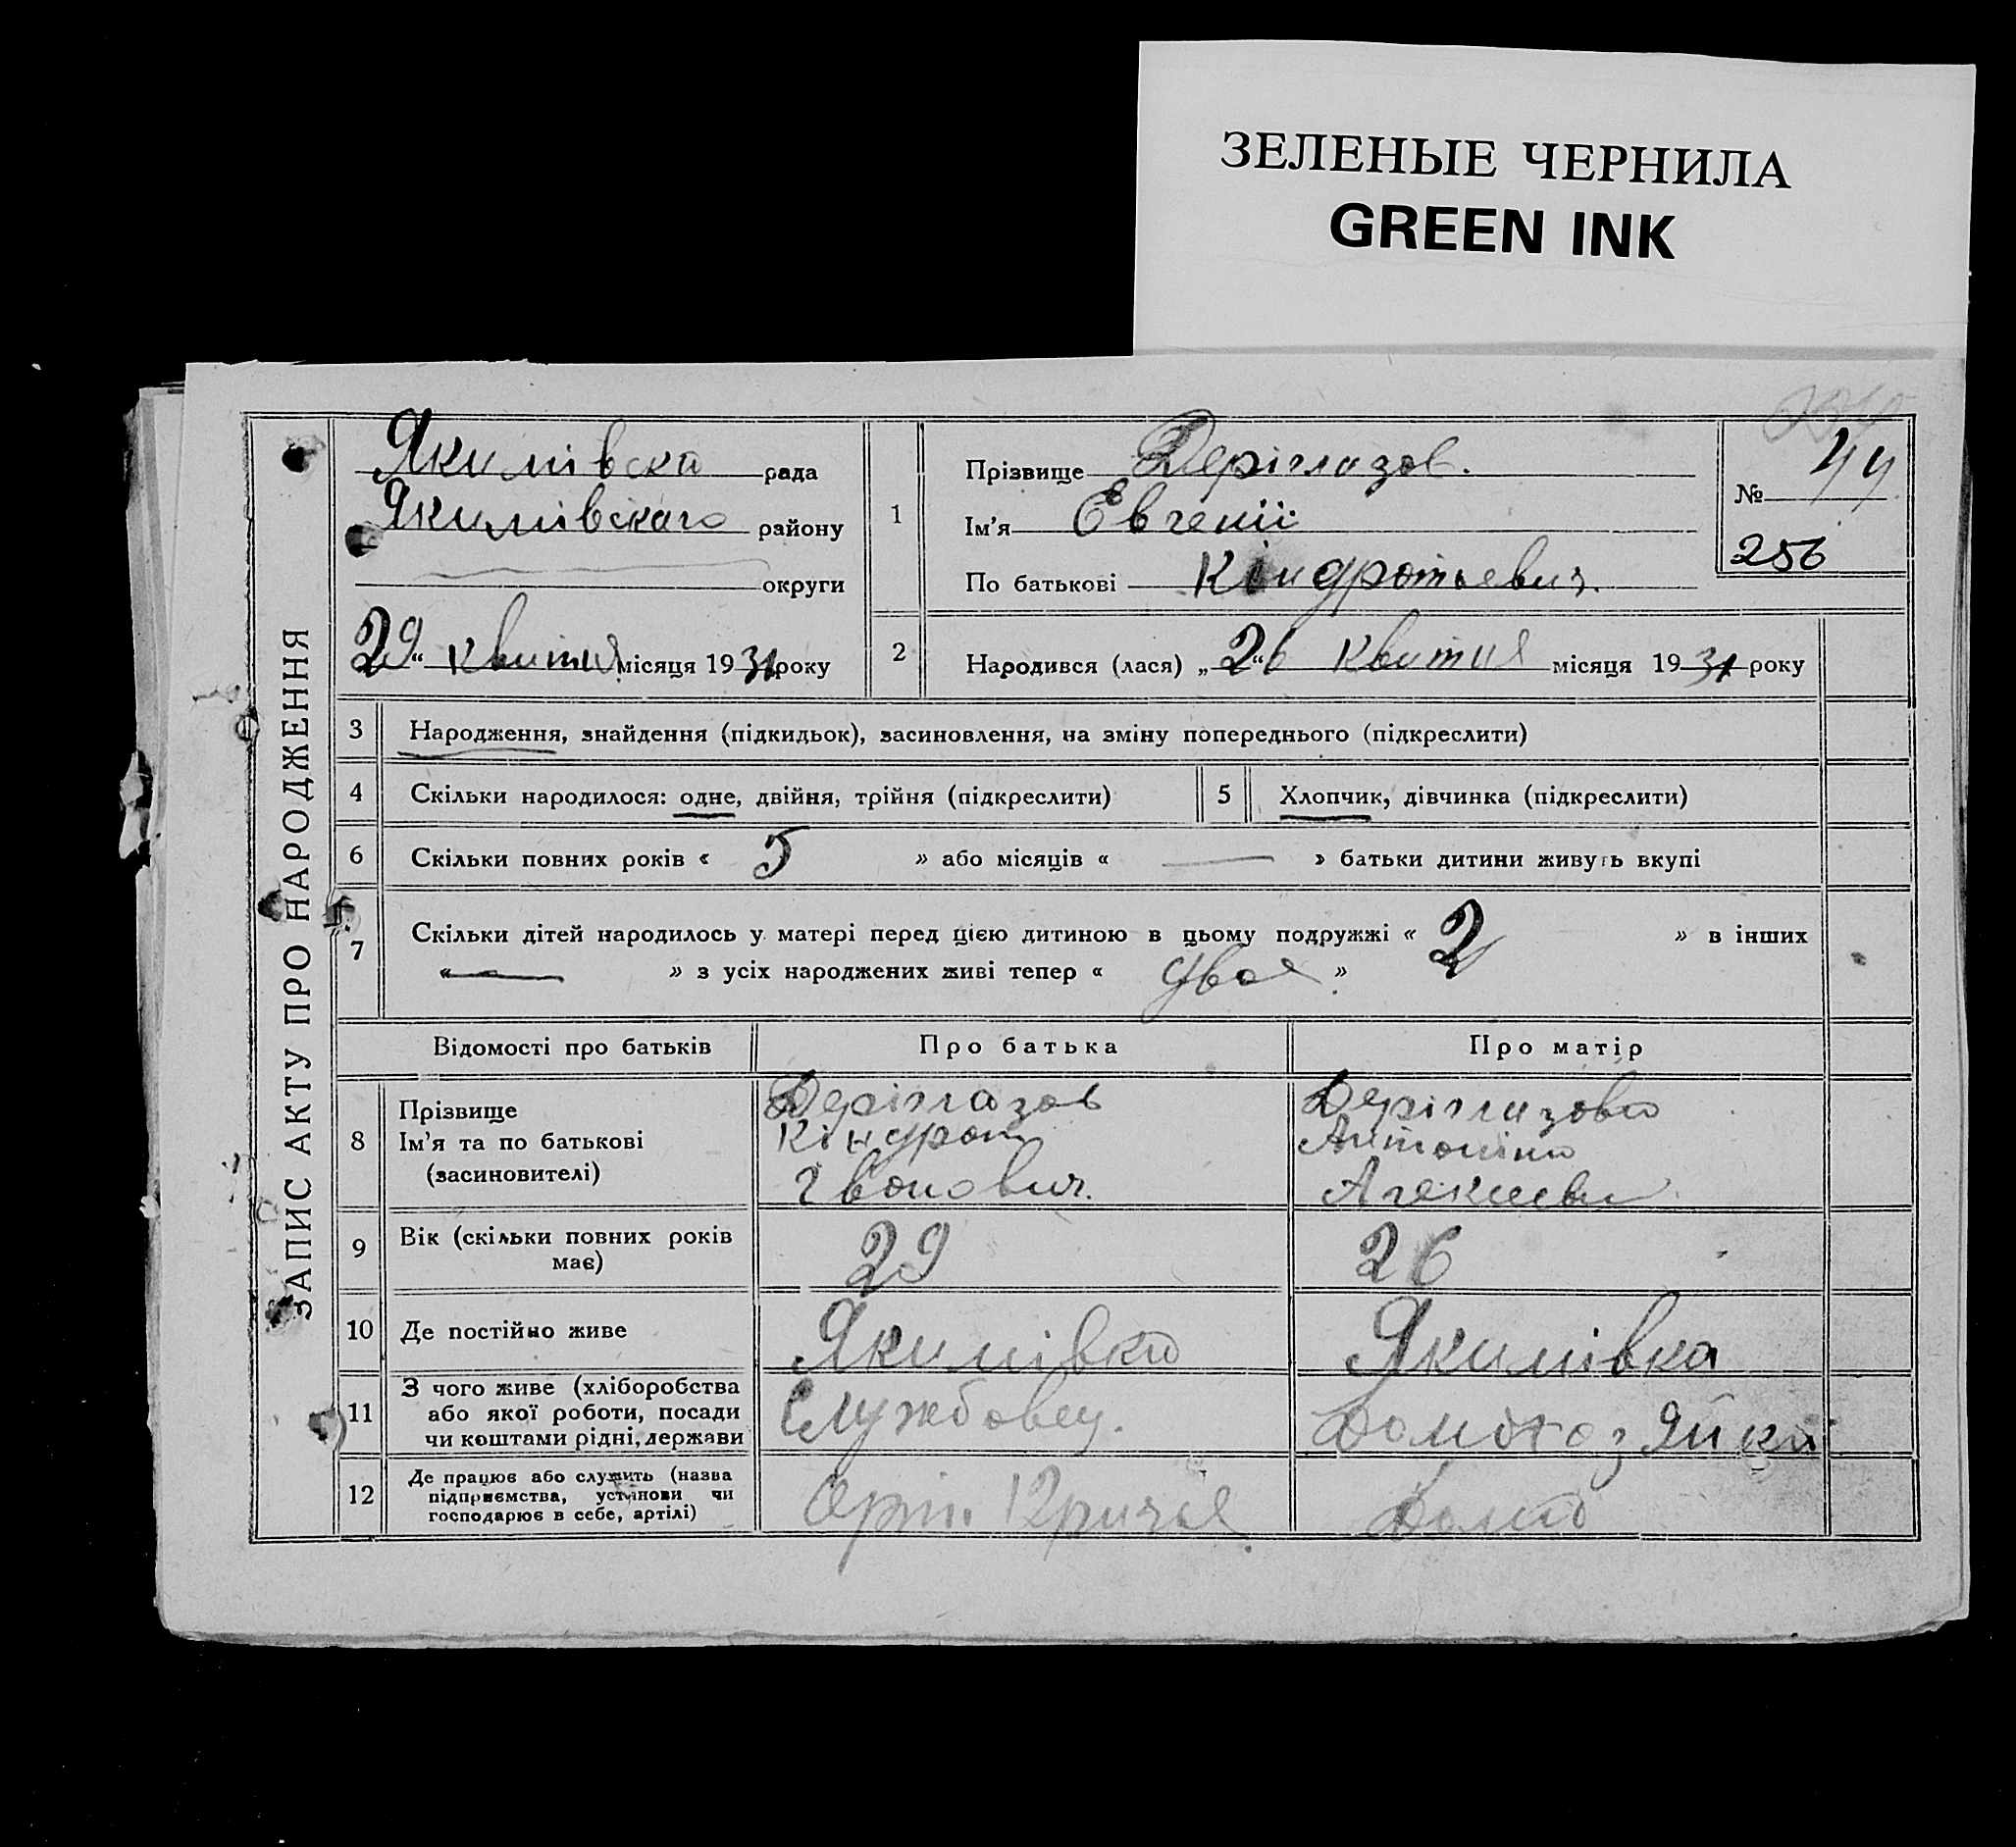 ЗЕЛЕНЫЕ ЧЕРНИЛА
GREEN INK
ЗАПИС АКТУ ПРО НАРОДЖЕННЯ
Якимівска рада
Якимівскаго району
округи
29 “ квитня місяця 1931 року
1
Прізвище Деріглазов.
Ім’я Евгеній
По батькові Кіндротьевич.
№ 44
256
2
Народився (лася) „ 26 “ квитня місяця 1931 року
3 Народження, знайдення (підкидьок), засиновлення, на зміну попереднього (підкреслити)
4 Скільки народилося: одне, двійня, трійня (підкреслити) 5 Хлопчик, дівчинка (підкреслити)
6 Скільки повних років « 5 » або місяців « — » батьки дитини живуть вкупі
7 Скільки дітей народилось у матері перед цією дитиною в цьому подружжі « 2 » в інших
« — » з усіх народжених живі тепер « двое »
Відомості про батьків Про батька Про матір
8
Прізвище
Ім’я та по батькові
(засиновителі)
Деріглазов
Кіндрат
Деріглазова
Антоніна
9 Вік (скільки повних років
має)
29 26
10 Де постійно живе Якимівка Якимівка
11 З чого живе (хліборобства
або якої роботи, посади
чи коштами рідні, держави
Службовец. Домохозяйка
12 Де працює або служить (назва
підприємства, установи чи
господарює в себе, артілі)
Дома